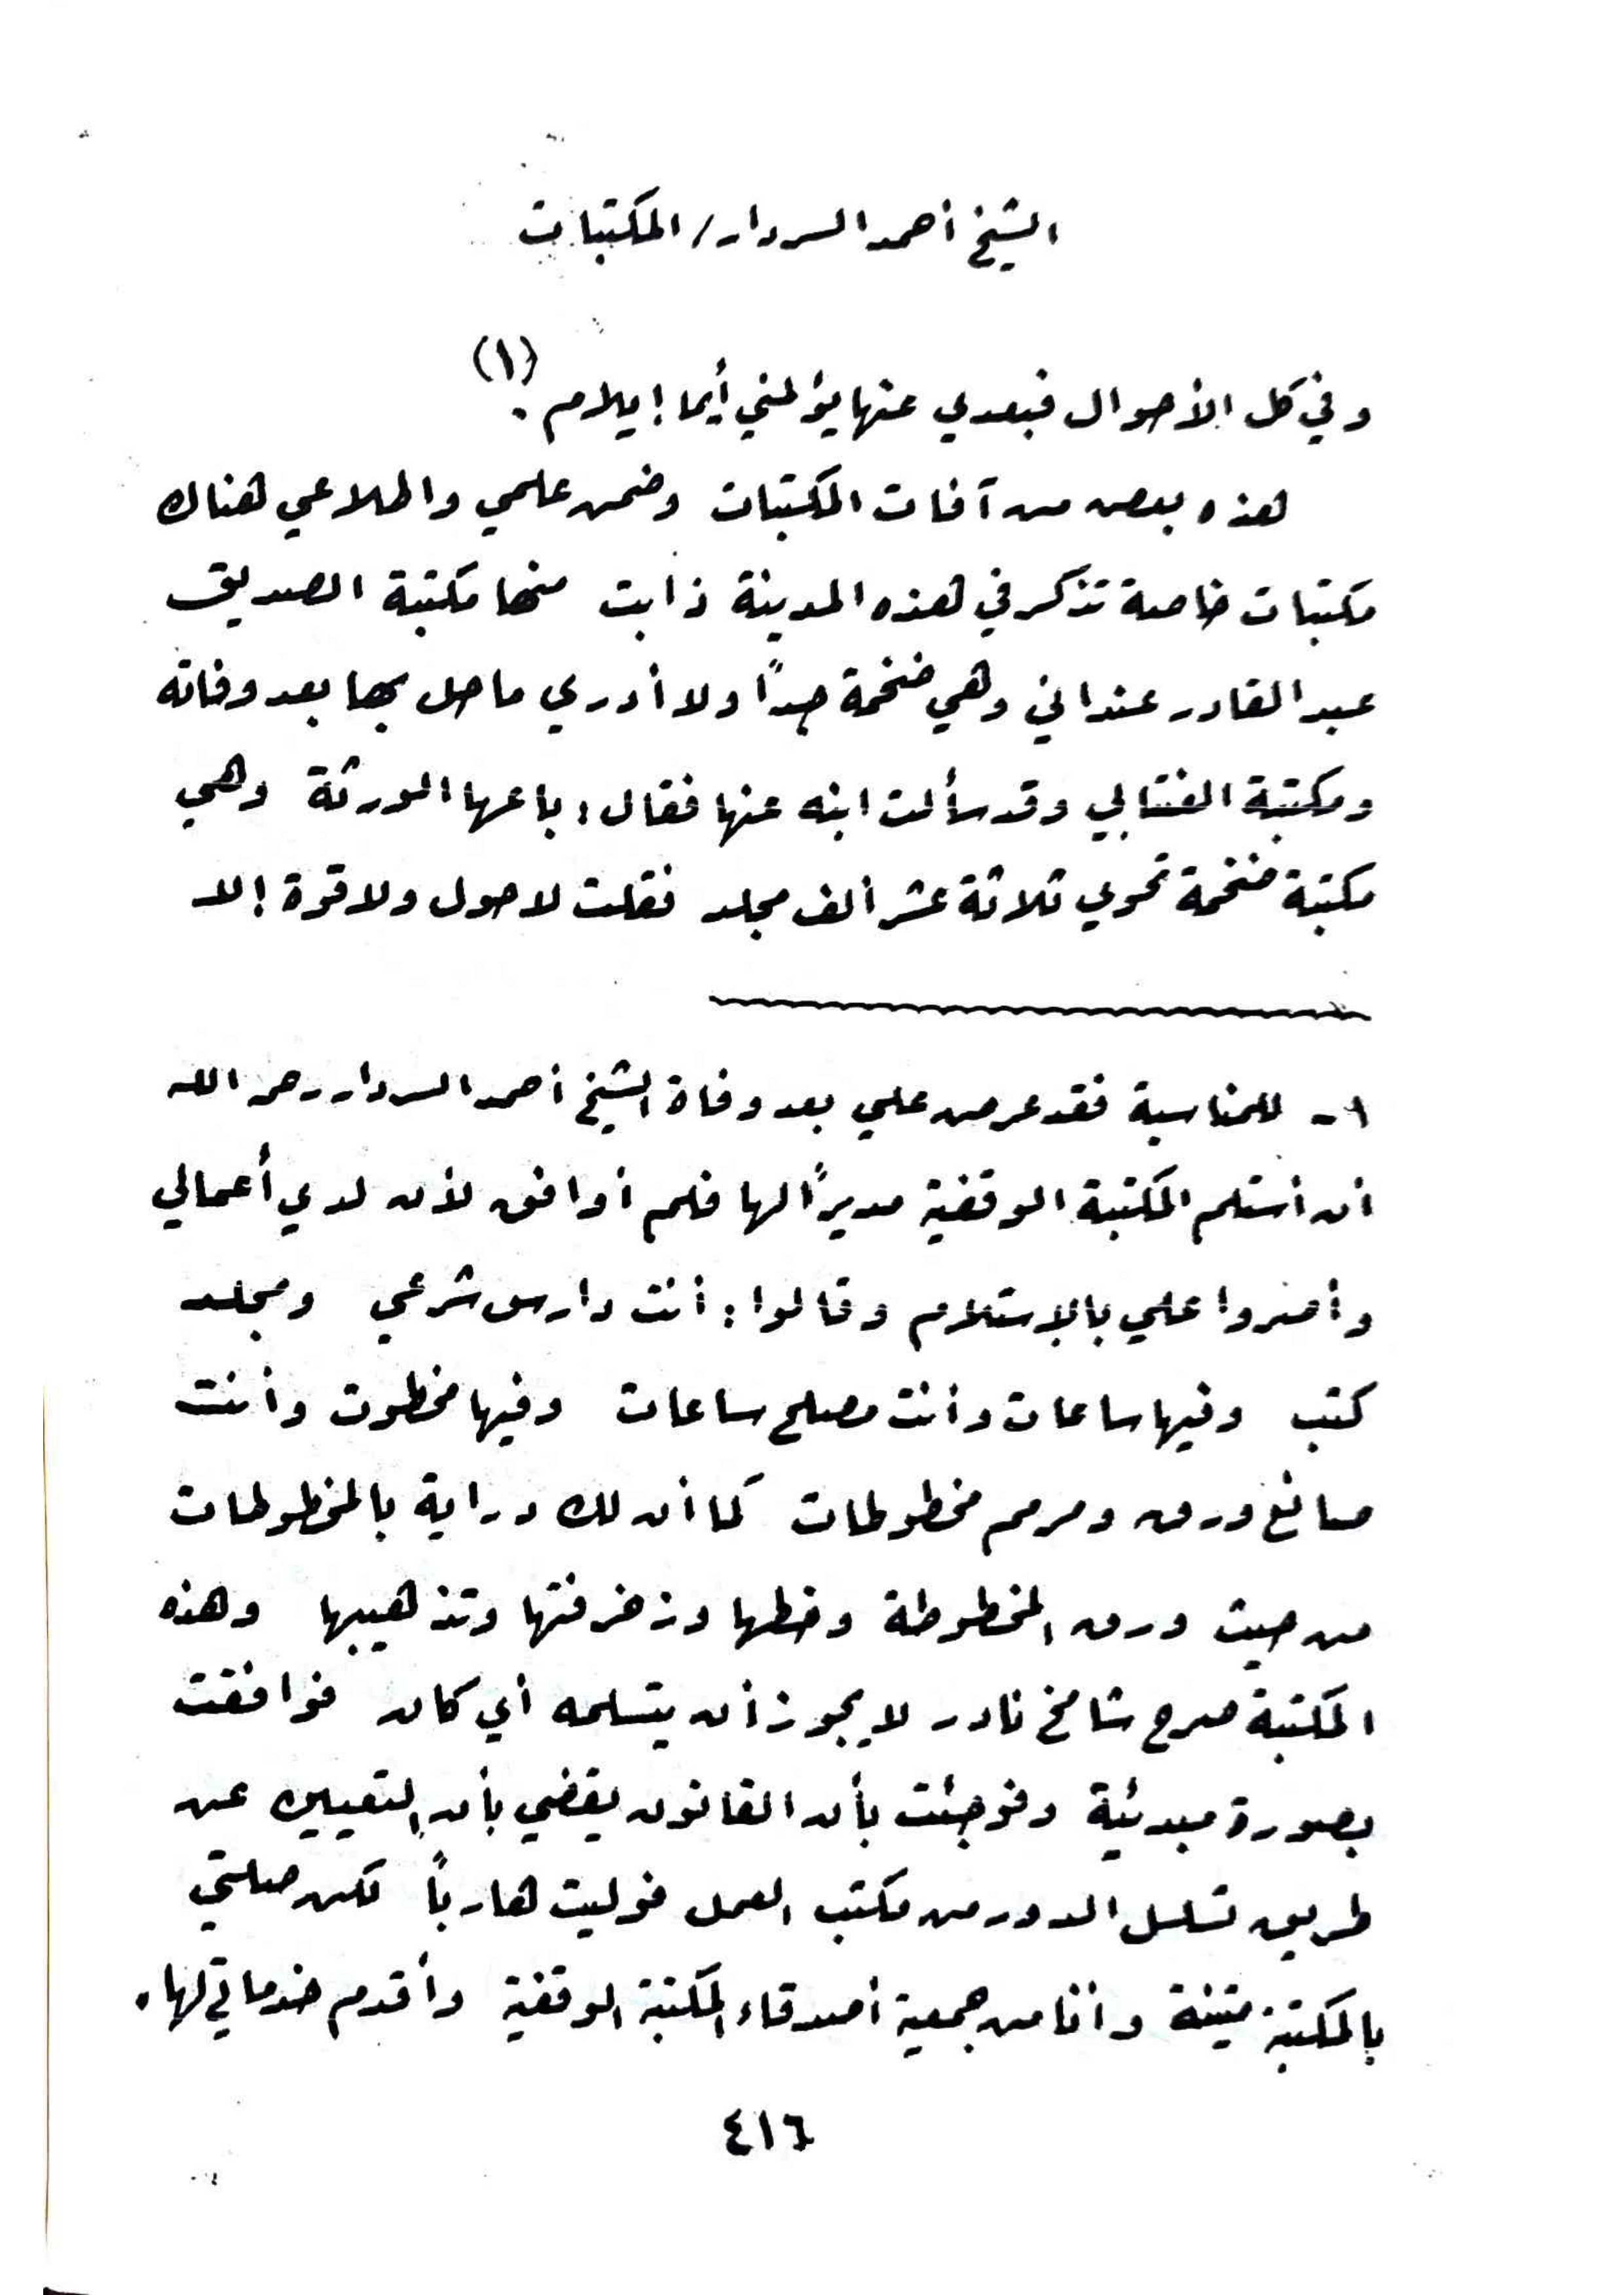 الشيخ أحمد السردار/المكتبات
وفي كل الأحوال فبعدي عنها يؤلمني أيما إيلام. (١)
هذه بعض من آفات المكتبات وضمن علمي واطلاعي هناك
مكتبات خاصة تذكر في هذه المدينة ذابت منها مكتبة الصديق
عبد القادر عنداني وهي ضخمة جداً ولا أدري ما حل بها بعد وفاته
ومكتبة وقد سألت ابنه عنها فقال: باعها الورثة وهي
مكتبة ضخمة تحوي ثلاثة عشر ألف مجلد فقلت لا حول ولا قوة إلا
١- للمناسبة فقد عرض علي بعد وفاة الشيخ أحمد السردار رحمه الله
أن أستلم المكتبة الوقفية مديراً لها فلم أوافق لأن لدي أعمالي
وأصروا علي بالإستلام وقالوا: أنت دارس شرعي ومجلد
كتب وفيها ساعات وأنت مصلح ساعات وفيها مخطوت وأنت
صانع ورق ومرمم مخطوطات كما أن لك دراية بالمخطوطات
من حيث ورق المخطوطة وخطها وزخرفتها وتذهيبها وهذه
المكتبة صرح شامخ نادر لا يجوز أن يتسلمه أي كان فوافقت
بصورة مبدئية وفوجئت بأن القانون يقضي بأن التعيين عن
طريق تسلسل الدور من مكتب العمل فوليت هارباً لكن صلتي
بالمكتبة متينة وأنا من جمعية أصدقاء المكتبة الوقفية وأقدم خدماتي لها.
٤١٦